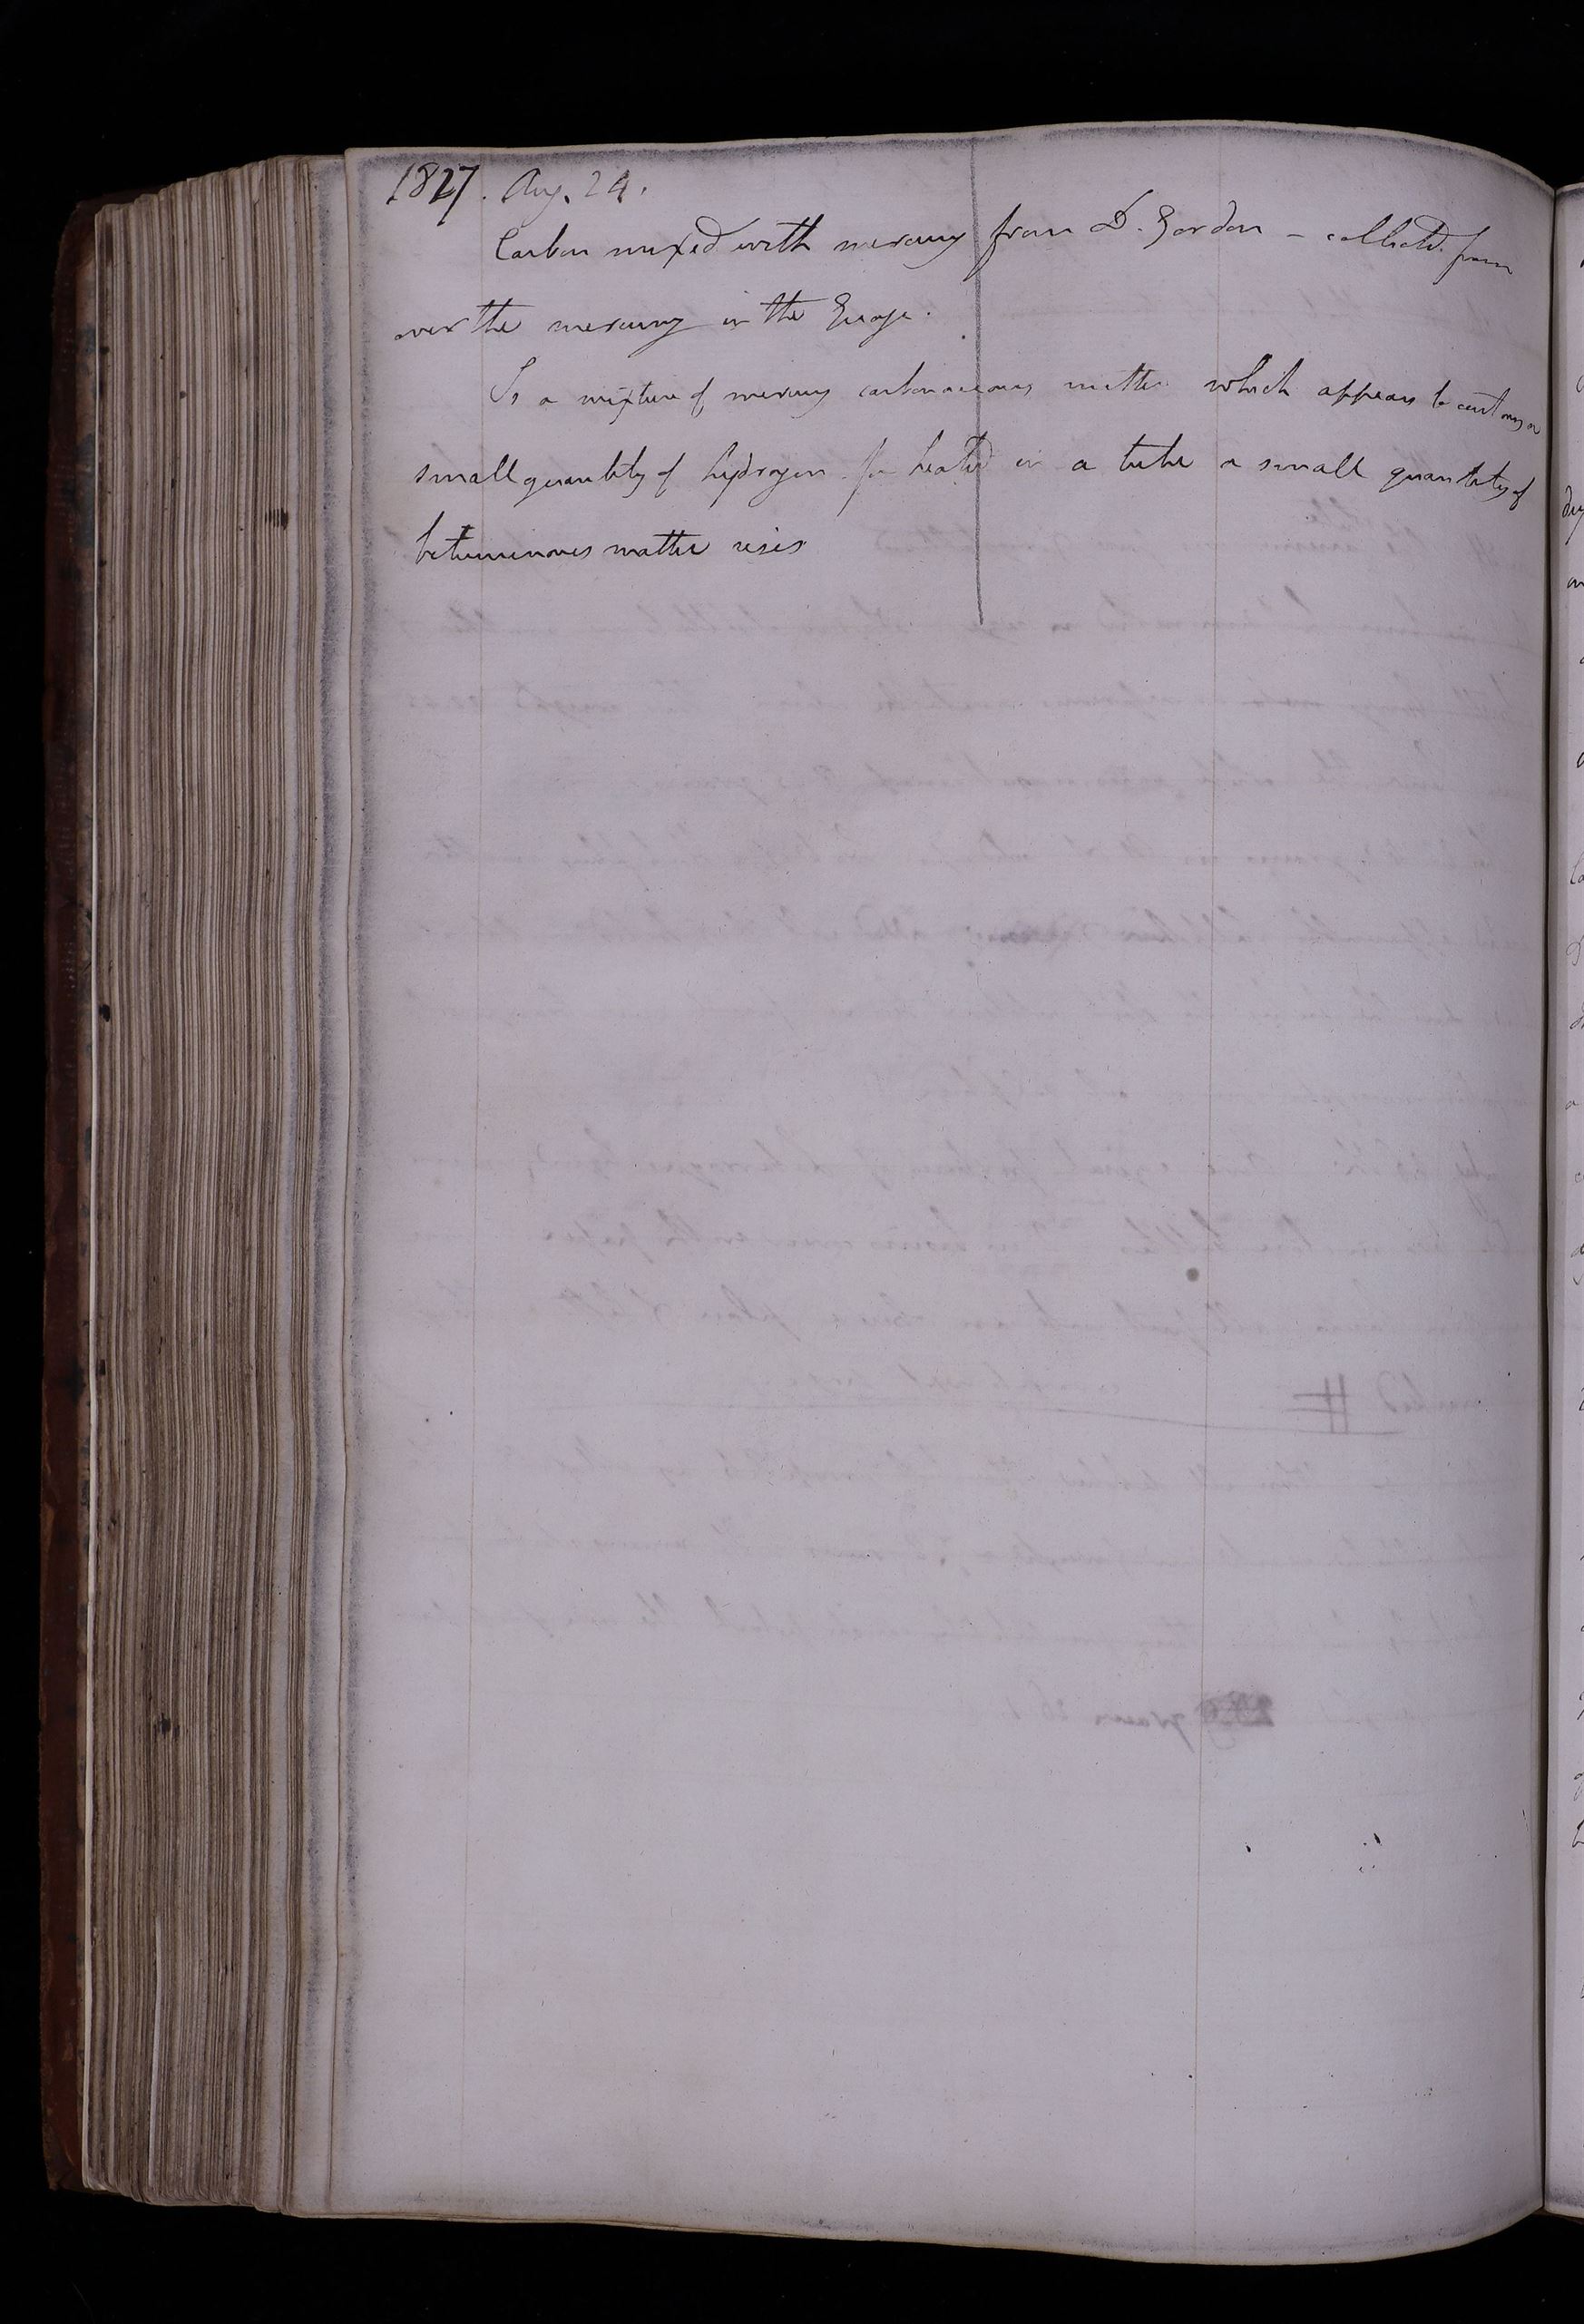 1827. Aug. 24.
Carbon mixed with mercury from D. Gordon - collected from
over the mercury in the Guage.
Is a mixture of mercury carbonaceous matter which appears to contain a
small quantity of hydrogen for heated in a tube a small quantity of
bituminous matter rises